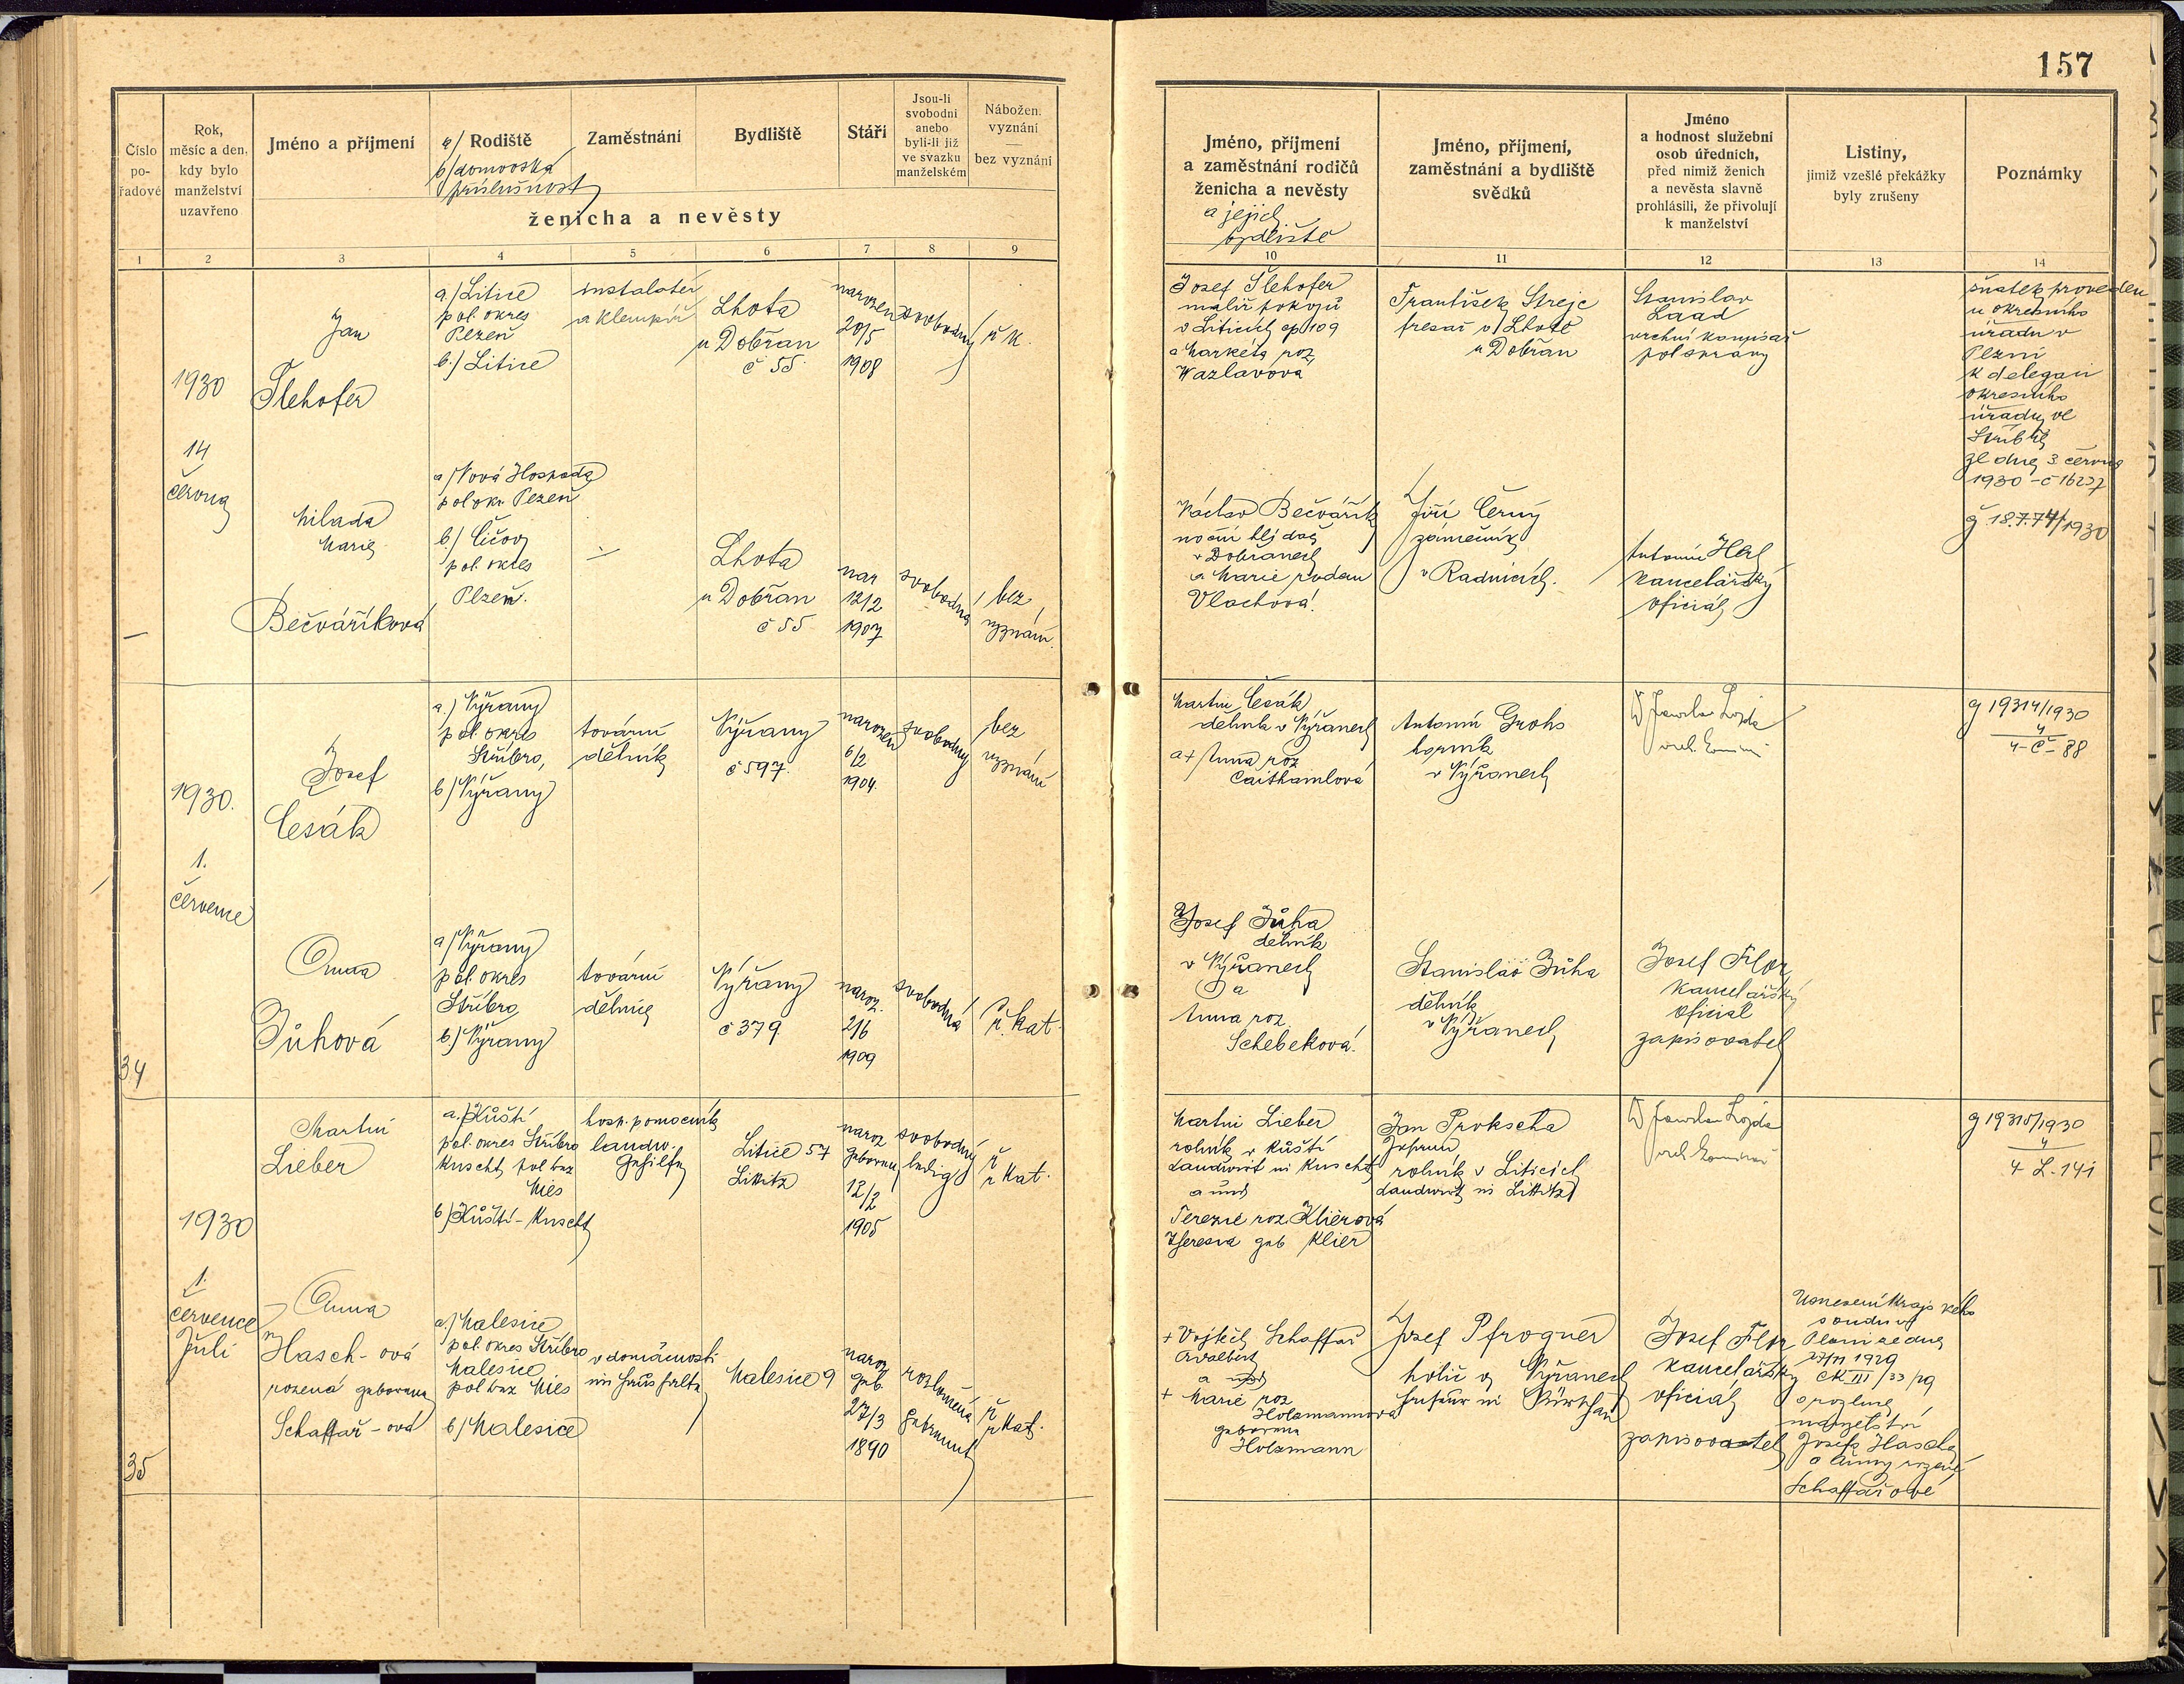 157
Číslo
po-
řadové
Rok,
měsíc a den,
kdy bylo
manželství
uzavřeno
Jméno a příjmení
a/ Rodiště
b/ domovská
příslušnost
Zaměstnání
Bydliště
Stáří
Jsou-li
svobodni
anebo
byli-li již
ve svazku
manželském
Nábožen.
vyznání
—
bez vyznání
ženicha a nevěsty
Jméno, příjmení
a zaměstnání rodičů
ženicha a nevěsty
a jejich
bydliště
Jméno, příjmení,
zaměstnání a bydliště
svědků
Jméno
a hodnost služební
osob úředních,
před nimiž ženich
a nevěsta slavně
prohlásili, že přivolují
k manželství
Listiny,
jimiž vzešlé překážky
byly zrušeny
Poznámky
1 2 3 4 5 6 7 8 9
10 11 12 13 14
1930
14
června
Jan
a./ Litice
pol. okres
Plzeň
b./ Litice
instalatér
a klempíř
Lhota
u Dobřan
č 55
narozen
20/5
1908
svobodný
ř K.
Josef
malíř pokojů
v Liticích čp 109
a Markéta roz
Wazlavová
František Strejc
v Lhotě
u Dobřan
Stanislav
vrchní komisař
pol správy
sňatek proveden
u okresního
úřadu v
Plzni
k delegaci
okresního
úřadu ve
Stříbře
ze dne 3 června
1930 - č 16227
č 18.774/1930
Milada
Marie
Bečváříková
a/ Nová Hospoda
pol okr Plzeň
b/ Čičov
pol. okres
Plzeň.
Lhota
u Dobřan
č 55
nar
12/2
1907
svobodná
bez
vyznání.
Václav Bečvářík
noční hlídač
v Dobřanech
a Marie rozen
Vlachová.
Jiří Černý
zámečník
v Radnicích.
Antonín
kancelářský
oficiál
1930.
1.
července
34
Josef
Česák
a.) Nýřany
pol. okres
Stříbro,
b/ Nýřany
tovární
dělník
Nýřany
č 597.
narozen
6/2
1904.
svobodný
bez
vyznání
Martin Česák
dělník v Nýřanech
a + Anna roz
Caithamlová
Antonín Grohs
horník
v Nýřanech
g 19314/1930
4
4-Č-88
Anna
Jůhová
a/ Nýřany
pol. okres
Stříbro
b/ Nýřany
tovární
dělnice
Nýřany
č 379
naroz.
2/6
1909
svobodná
ř. kat.
Josef Jůha
dělník
v Nýřanech
a
Anna roz
Schebeková.
Stanislav Jůha
dělník
v Nýřanech
Josef Flor
kancelářský
oficiál
zapisovatel
1930
1.
července
Juli
35
Martin
Lieber
a./ Kůští
pol. okres Stříbro
Kuscht, pol bez
Mies
b/ Kůští - Kuscht
hosp. pomocník
landw.
Gehilfe
Litice 57
Littitz
naroz
geboren
12/2
1905
svobodný
ledig
ř
r kat.
Martin Lieber
rolník v Kůští
Landwirt in Kuscht
a und
Terezie roz. Klierová
Theresia geb Klier
Jan Prokscha
Johann
rolník v Liticích
Landwirt in Littitz
g 19315/1930
4
4 L-141
Anna
Hasch-ová
rozená geborene
Schaffař-ová
a./ Malesice
pol. okres Stříbro
Malesice
pol bez Mies
b/ Malesice
v domácnosti
im Haushalte
Malesice 9
naroz
geb.
27/3
1890
rozloučená
getrennt
ř
r kat.
+ Vojtěch Schaffař
a
+ Marie roz
Holzmannová
geborene
Holzmann
Josef Pfrogner
holič v Nýřanech
Friseur in Nürschan
Josef Flor
kancelářský
oficiál
zapisovatel
Usnesení krajského
soudu v
Plzni ze dne
1929
Ck III /33/29
o rozluce
manželství
Josefa Hascha
a Anny rozené
Schaffařové